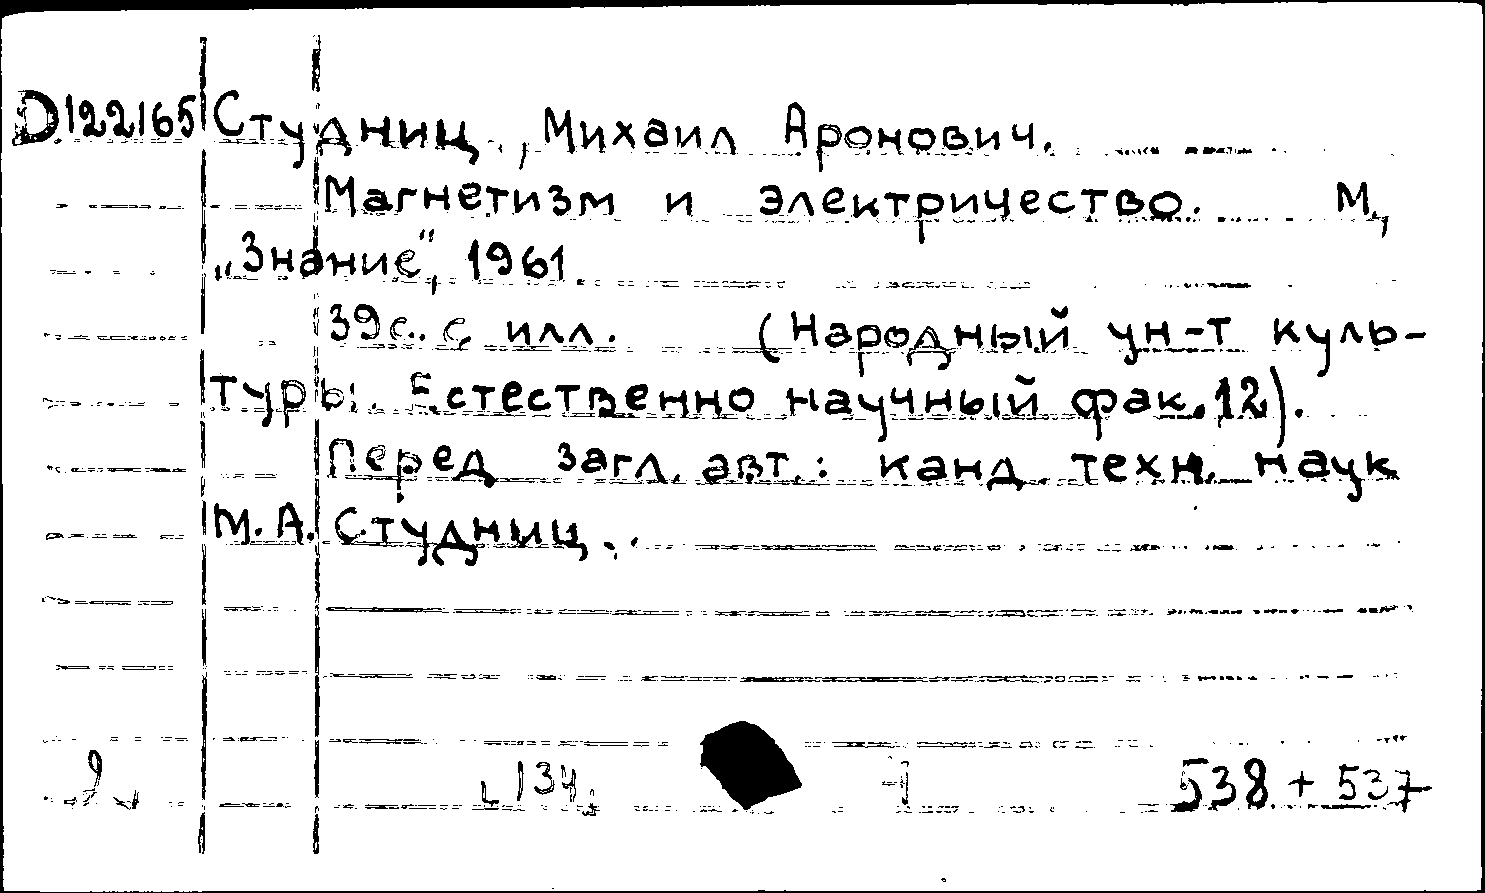 D122165 Студниц, Михаил Аронович.
Магнетизм и электричество. М.,
„Знание", 1961.
39с. с илл. (Народный ун-т куль-
туры. Естественно научный фак. 12).
Перед загл. авт.: канд. техн. наук
М. А. Студниц.
2 134 538 + 537